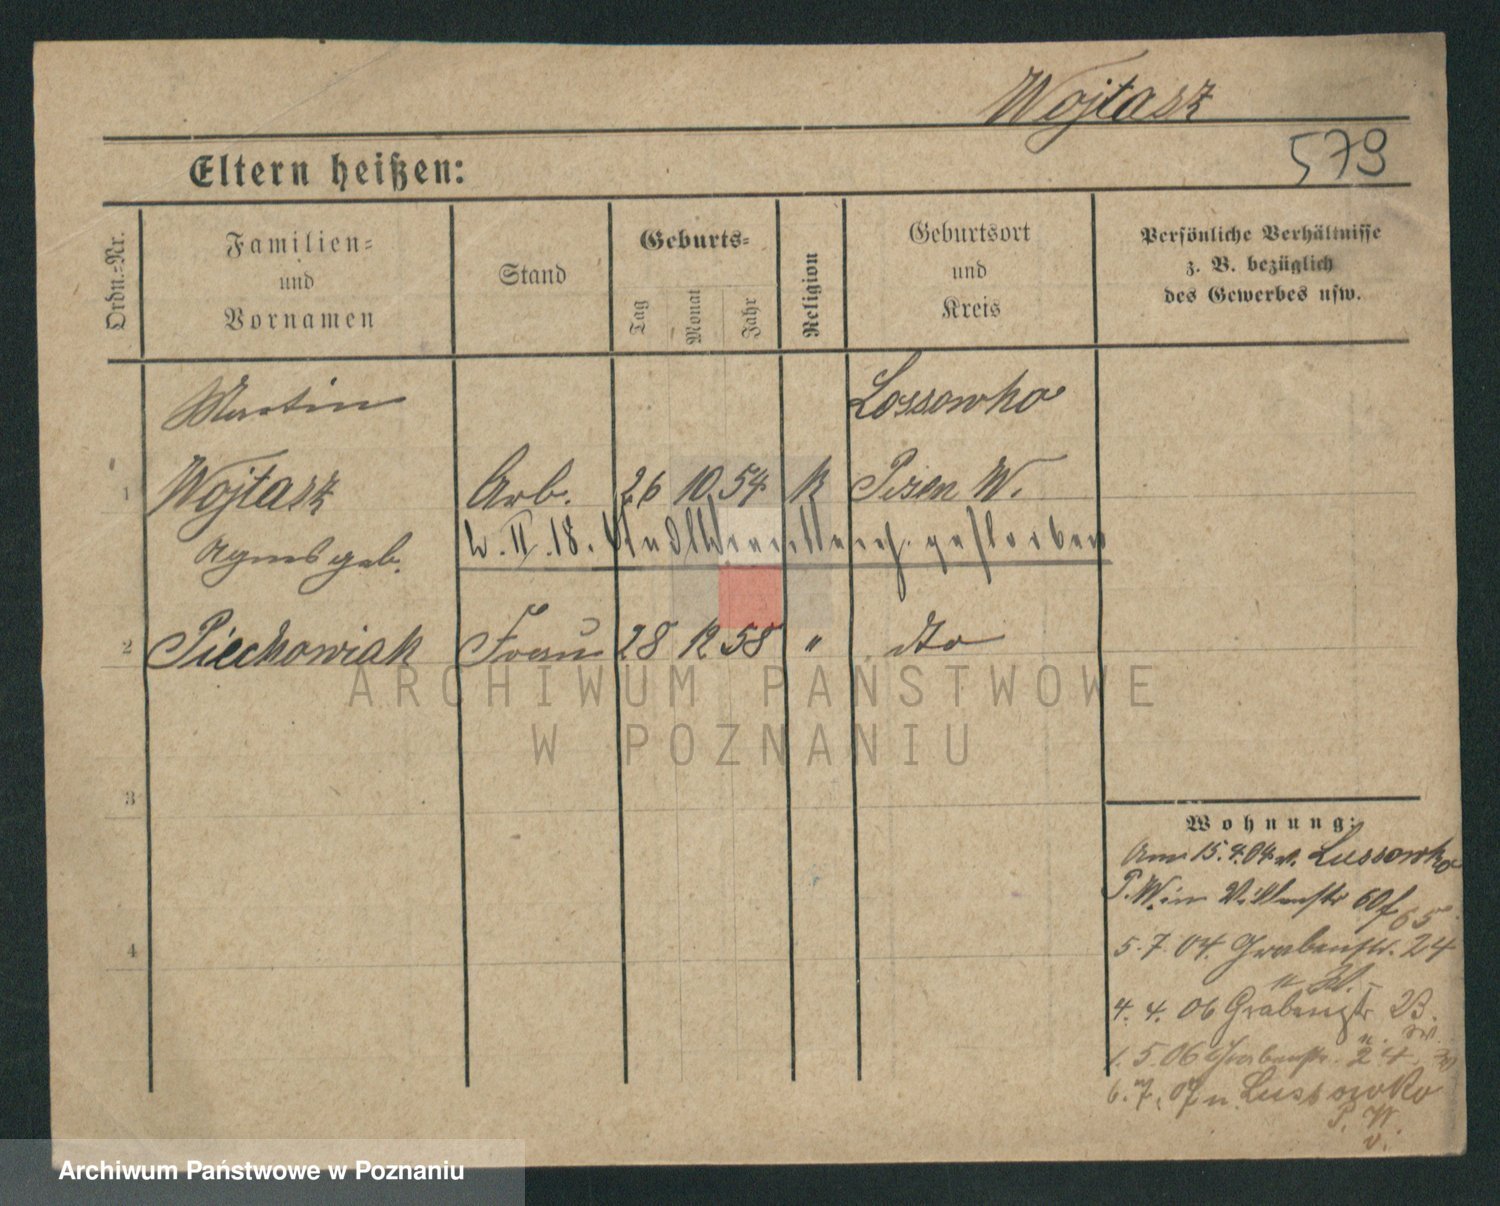 Wojtasz
579
Eltern heißen:
Ordn.-Nr.
Familien- und Vornamen
Stand
Geburts-
Tag
Monat
Jahr
Religion
Geburtsort und Kreis
Persönliche Verhältnisse
z. B. bezüglich
des Gewerbes usw.
Martin Lossowko
1 Wojtasz Arb. 26 10 54 K Posen W.
II. 18. gestorben
Agnes geb.
2 Piechowiak Frau 28 12 58 " dto
ARCHIWUM PAŃSTWOWE
W POZNANIU
3
4
Wohnung:
Am 15.4.04 v. Lussowko
P. W. in 60
5.7.04. Grabenstr. 24
4. 4. 06 Grabenstr 23.
1. 5. 06 Grabenstr. 24
6. 7. 07 n. Lussowko
P. W.
Archiwum Państwowe w Poznaniu